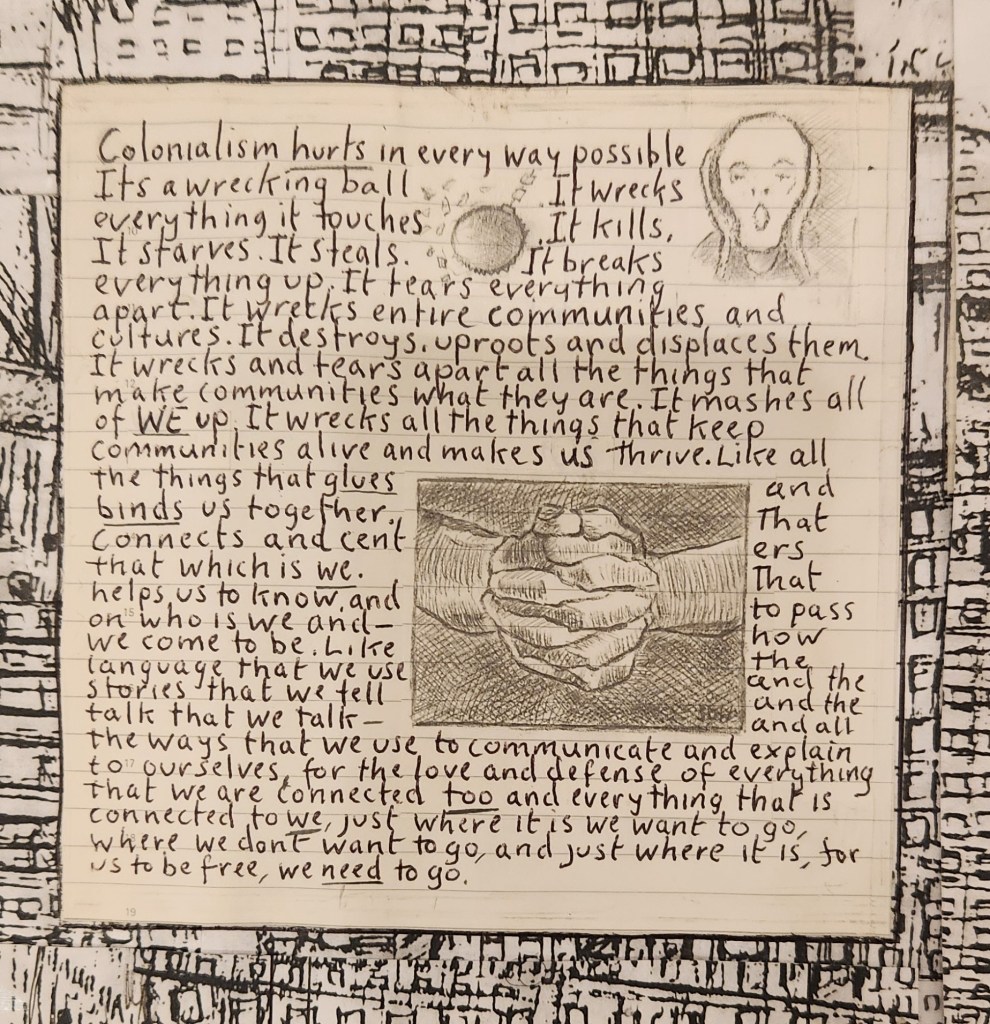 Colonialism hurts in every way possible
Its a wrecking ball It wrecks
everything it touches It kills,
It starves. It steals. It breaks
everything up. It tears everything
apart. It wrecks entire communities and
cultures. It destroys, uproots and displaces them.
It wrecks and tears apart all the things that
make communities what they are. It mashes all
of WE up. It wrecks all the things that keep
communities alive and makes us thrive. Like all
the things that glues and
binds us together. That
connects and cent ers
that which is we. That
helps us to know, and to pass
on who is we and— how
we come to be. Like the
language that we use and the
stories that we tell and the
talk that we talk— and all
the ways that we use to communicate and explain
to ourselves, for the love and defense of everything
that we are connected too and everything that is
connected to we, just where it is we want to go,
where we dont want to go, and just where it is, for
us to be free, we need to go.
19